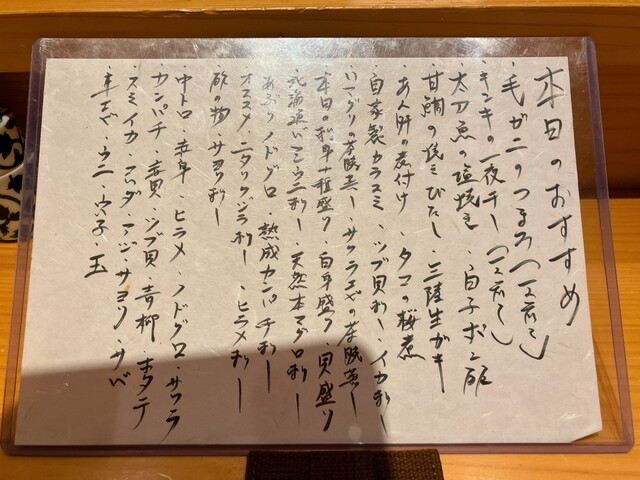 本日のおすすめ
・毛ガニのつまみ
・キンキの一夜干し
太刀魚の塩焼き ・白子ポン酢
甘鯛の焼きびたし 三陸生ガキ
・あん肝の煮付け ・タコの桜煮
自家製カラスミ ・ツブ貝刺し・イカ刺し
・ハマグリの茶碗蒸し ・サクラエビの茶碗蒸し
本日の刺身十種盛り ・白身盛り・貝盛り
ウニ刺し ・天然本マグロ刺し
あぶりノドグロ ・熟成カンパチ刺し
オススメ・ニタリクジラ刺し ・ヒラメ刺し
酢の物・サヨリ刺し
中トロ・赤身・ヒラメ・ノドグロ・サワラ
カンパチ・赤貝・ツブ貝・青柳・ホタテ
スミイカ・コハダ・アジ・サヨリ・サバ
・車エビ・ウニ・穴子・玉